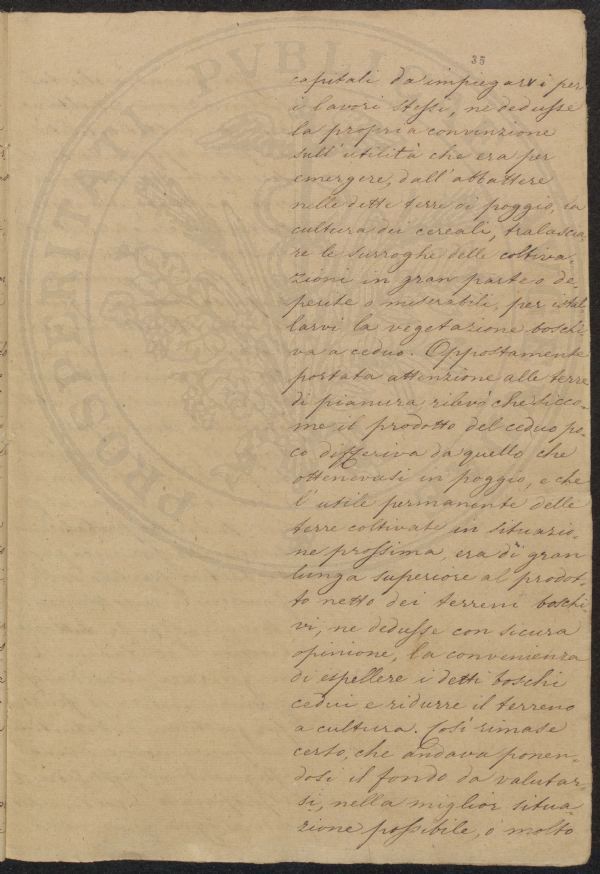 35
PROSPERITATI PVBLICAE
capitali da impiegarvi per
i lavori stessi, ne dedusse
la propria convinzione
sull'utilità che era per
emergere, dall'abbattere
nelle dette terre di poggio, la
cultura dei cereali, tralascia-
re le surroghe delle coltiva-
zioni in gran parte o de-
perite o miserabili, per istal-
larvi la vegetazione boschi-
va a ceduo. Oppostamente
portata attenzione alle terre
di pianura rilevò che sicco-
me il prodotto del ceduo po-
co differiva da quello che
ottenevasi in poggio, e che
l'utile permanente delle
terre coltivate in situazio-
ne prossima, era di gran
lunga superiore al prodot-
to netto dei terreni boschi-
vi, ne dedusse con sicura
opinione, la convenienza
di espellere i detti boschi
cedui e ridurre il terreno
a cultura. Così rimase
certo, che andava ponen-
dosi il fondo da valutar-
si, nella miglior situa-
zione possibile, o molto